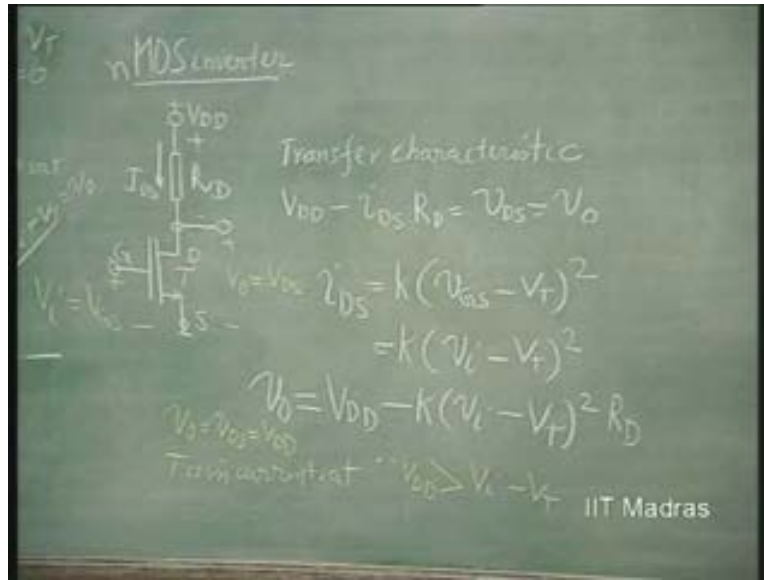 V_T
=0
nMOS inverter
V_DD
+
I_DS
R_D
-
+
G
D
S
+
V_i = V_GS
V_0 = V_DS
Transfer characteristic
V_DD - i_DS R_D = v_DS = v_0
i_DS = k(v_GS - V_T)²
= k(v_i - V_T)²
v_0 = V_DD - K(v_i - V_T)² R_D
v_0 = v_DS = V_DD
Tran in sat ∵ V_DD > V_i - V_T
IIT Madras